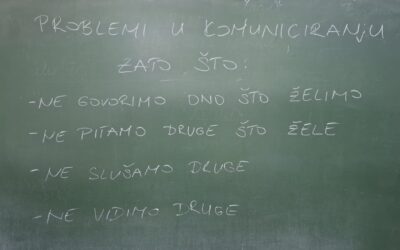 PROBLEMI U KOMUNICIRANJU
ZATO ŠTO:
-NE GOVORIMO ONO ŠTO ŽELIMO
-NE PITAMO DRUGE ŠTO ŽELE
-NE SLUŠAMO DRUGE
-NE VIDIMO DRUGE